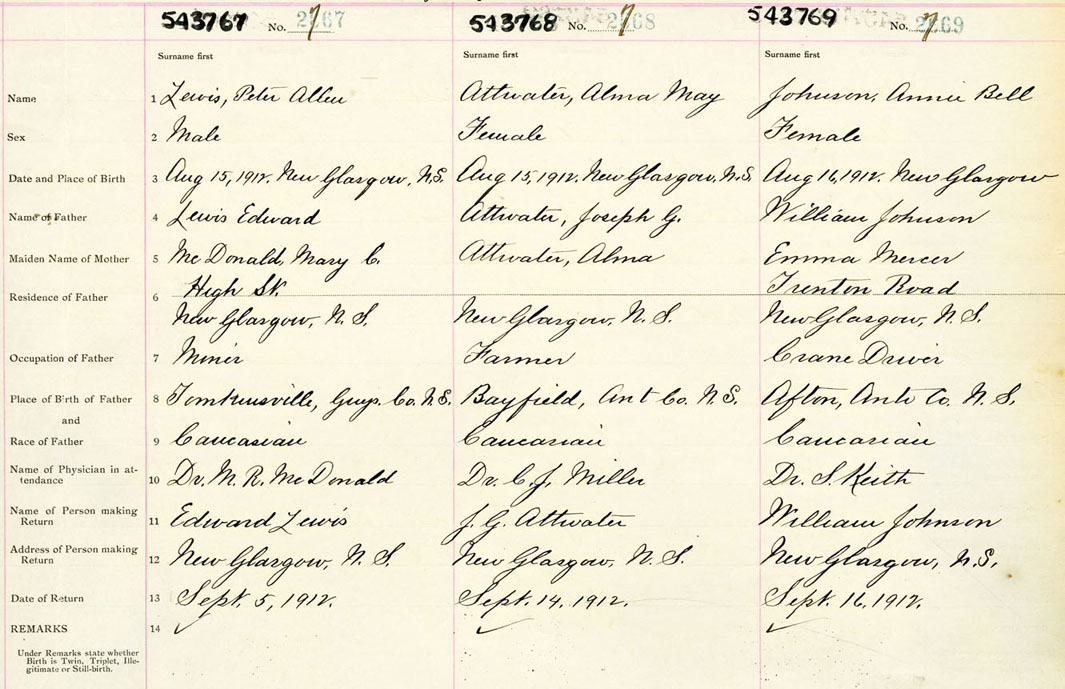 543767 No. 2267 7 543768 No. 2268 7 543769 No. 2269 7
Surname first Surname first Surname first
Name 1 Lewis, Peter Allen Attwater, Alma May Johnson, Annie Bell
Sex 2 Male Female Female
Date and Place of Birth 3 Aug 15, 1912. New Glasgow, N.S. Aug 15, 1912. New Glasgow, N.S. Aug 16, 1912. New Glasgow
Name of Father 4 Lewis Edward Attwater, Joseph G. William Johnson
Maiden Name of Mother 5 McDonald, Mary C. Attwater, Alma Emma Mercer
Residence of Father 6 High St. Trenton Road
New Glasgow, N. S. New Glasgow, N. S. New Glasgow, N. S.
Occupation of Father 7 Miner Farmer Crane Driver
Place of Birth of Father 8 Tomkinsville, Guys. Co. N.S. Bayfield, Ant Co. N. S. Afton, Ant. Co. N. S.
and
Race of Father 9 Caucasian Caucasian Caucasian
Name of Physician in at-
tendance 10 Dr. M. R. McDonald Dr. C. J. Miller Dr. S. Keith
Name of Person making
Return 11 Edward Lewis J. G. Attwater William Johnson
Address of Person making
Return 12 New Glasgow, N. S. New Glasgow, N. S. New Glasgow, N.S.
Date of Return 13 Sept. 5, 1912. Sept. 14, 1912. Sept. 16, 1912.
REMARKS 14 ✓ ✓ ✓
Under Remarks state whether
Birth is Twin, Triplet, Ille-
gitimate or Still-birth.